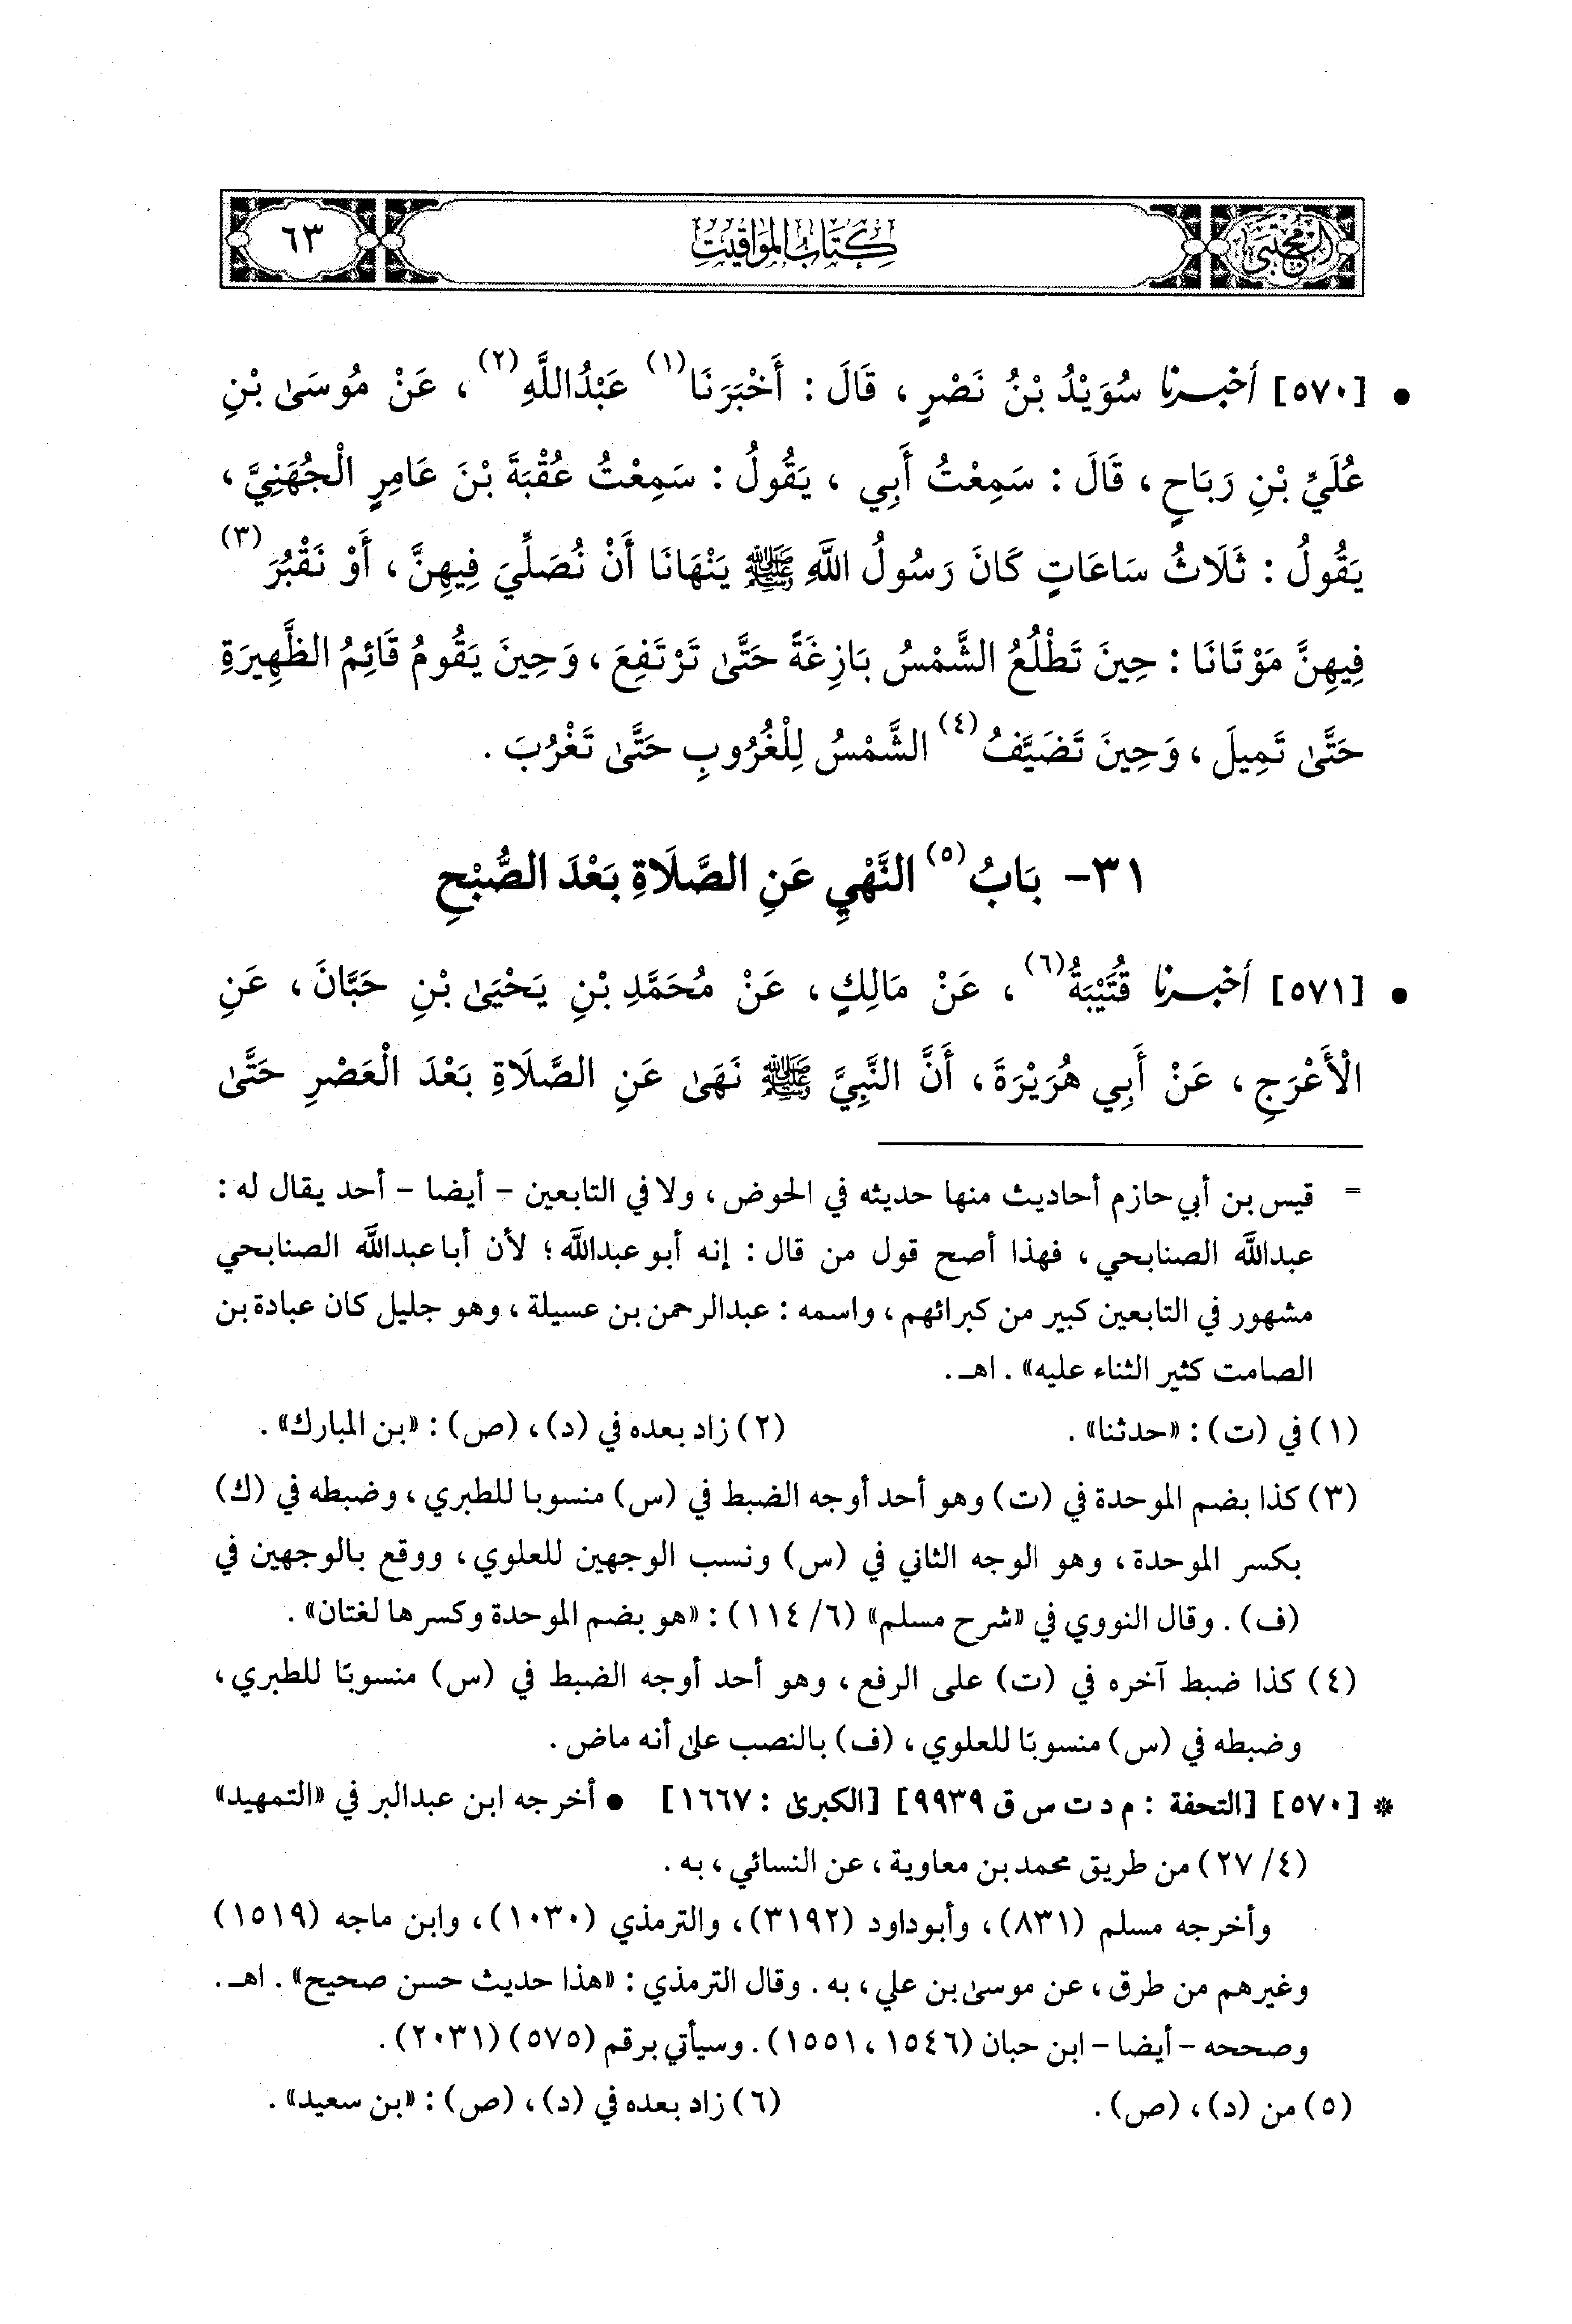 المجتبى
كِتَابُ المَوَاقِيتِ
٦٣
• [٥٧٠] أخبرنا سُوَيْدُ بْنُ نَصْرٍ، قَالَ: أَخْبَرَنَا(١) عَبْدُاللَّهِ(٢)، عَنْ مُوسَىٰ بْنِ
عُلَيِّ بْنِ رَبَاحٍ، قَالَ: سَمِعْتُ أَبِي، يَقُولُ: سَمِعْتُ عُقْبَةَ بْنَ عَامِرٍ الْجُهَنِيَّ،
يَقُولُ: ثَلَاثُ سَاعَاتٍ كَانَ رَسُولُ اللَّهِ ﷺ يَنْهَانَا أَنْ نُصَلِّيَ فِيهِنَّ، أَوْ نَقْبُرَ(٣)
فِيهِنَّ مَوْتَانَا: حِينَ تَطْلُعُ الشَّمْسُ بَازِغَةً حَتَّىٰ تَرْتَفِعَ، وَحِينَ يَقُومُ قَائِمُ الظَّهِيرَةِ
حَتَّىٰ تَمِيلَ، وَحِينَ تَضَيَّفُ(٤) الشَّمْسُ لِلْغُرُوبِ حَتَّىٰ تَغْرُبَ.
٣١- بَابُ(٥) النَّهْيِ عَنِ الصَّلَاةِ بَعْدَ الصُّبْحِ
• [٥٧١] أخبرنا قُتَيْبَةُ(٦)، عَنْ مَالِكٍ، عَنْ مُحَمَّدِ بْنِ يَحْيَىٰ بْنِ حَبَّانَ، عَنِ
الْأَعْرَجِ، عَنْ أَبِي هُرَيْرَةَ، أَنَّ النَّبِيَّ ﷺ نَهَىٰ عَنِ الصَّلَاةِ بَعْدَ الْعَصْرِ حَتَّىٰ
= قيس بن أبي حازم أحاديث منها حديثه في الحوض، ولا في التابعين - أيضا - أحد يقال له:
عبدالله الصنابحي، فهذا أصح قول من قال: إنه أبو عبدالله؛ لأن أبا عبدالله الصنابحي
مشهور في التابعين كبير من كبرائهم، واسمه: عبدالرحمن بن عسيلة، وهو جليل كان عبادة بن
الصامت كثير الثناء عليه». اهـ.
(١) في (ت): «حدثنا». (٢) زاد بعده في (د)، (ص): «بن المبارك».
(٣) كذا بضم الموحدة في (ت) وهو أحد أوجه الضبط في (س) منسوبا للطبري، وضبطه في (ك)
بكسر الموحدة، وهو الوجه الثاني في (س) ونسب الوجهين للعلوي، ووقع بالوجهين في
(ف). وقال النووي في «شرح مسلم» (٦/ ١١٤): «هو بضم الموحدة وكسرها لغتان».
(٤) كذا ضبط آخره في (ت) على الرفع، وهو أحد أوجه الضبط في (س) منسوبًا للطبري،
وضبطه في (س) منسوبًا للعلوي، (ف) بالنصب علىٰ أنه ماض.
* [٥٧٠] [التحفة: م د ت س ق ٩٩٣٩] [الكبرىٰ: ١٦٦٧] • أخرجه ابن عبدالبر في «التمهيد»
(٤/ ٢٧) من طريق محمد بن معاوية، عن النسائي، به.
وأخرجه مسلم (٨٣١)، وأبوداود (٣١٩٢)، والترمذي (١٠٣٠)، وابن ماجه (١٥١٩)
وغيرهم من طرق، عن موسىٰ بن علي، به. وقال الترمذي: «هذا حديث حسن صحيح». اهـ.
وصححه - أيضا - ابن حبان (١٥٤٦، ١٥٥١). وسيأتي برقم (٥٧٥) (٢٠٣١).
(٥) من (د)، (ص). (٦) زاد بعده في (د)، (ص): «بن سعيد».